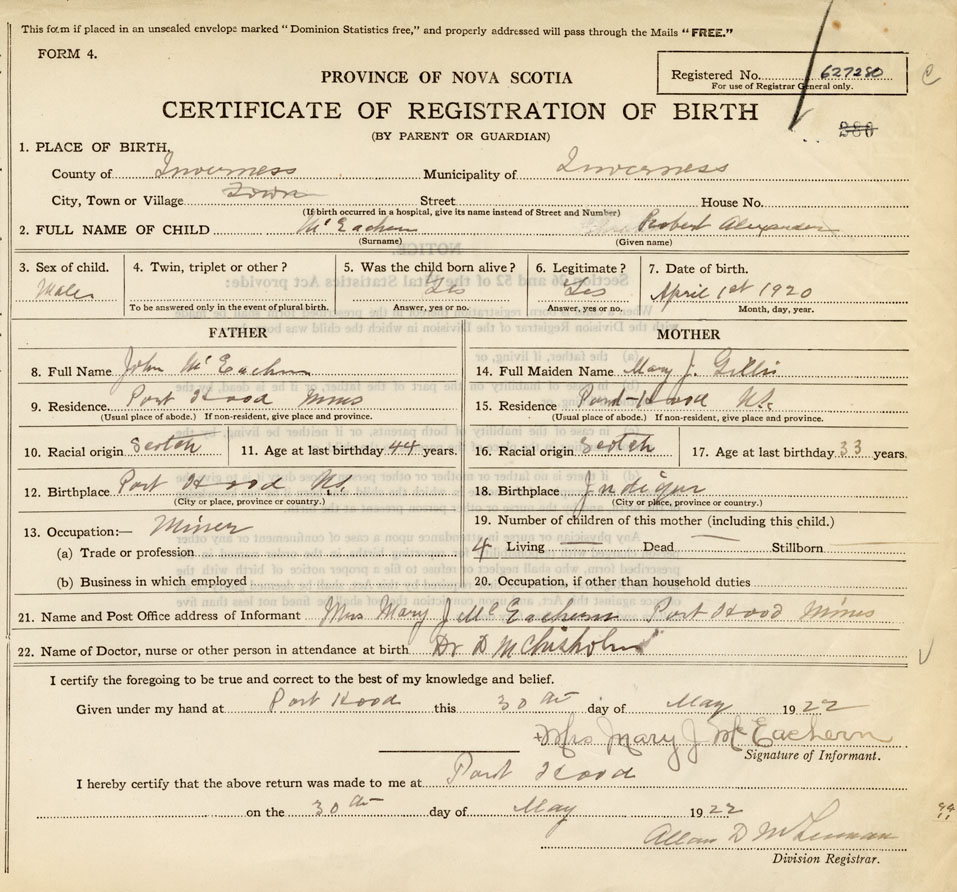 This form if placed in an unsealed envelope marked "Dominion Statistics free," and properly addressed will pass through the Mails "FREE."
FORM 4.
PROVINCE OF NOVA SCOTIA
Registered No. 627280
For use of Registrar General only.
CERTIFICATE OF REGISTRATION OF BIRTH
280
(BY PARENT OR GUARDIAN)
1. PLACE OF BIRTH.
County of Inverness Municipality of Inverness
City, Town or Village Town Street House No.
(If birth occurred in a hospital, give its name instead of Street and Number)
2. FULL NAME OF CHILD McEachern Robert Alexander
(Surname) (Given name)
3. Sex of child. 4. Twin, triplet or other? 5. Was the child born alive? 6. Legitimate? 7. Date of birth.
Male Yes Yes April 1st 1920
To be answered only in the event of plural birth. Answer, yes or no. Answer, yes or no. Month, day, year.
FATHER MOTHER
8. Full Name John McEachern 14. Full Maiden Name Mary J. Gillis
9. Residence Port Hood Mines 15. Residence Port Hood N.S.
(Usual place of abode.) If non-resident, give place and province. (Usual place of abode.) If non-resident, give place and province.
10. Racial origin Scotch 11. Age at last birthday 44 years. 16. Racial origin Scotch 17. Age at last birthday 33 years.
12. Birthplace Port Hood N.S. 18. Birthplace
(City or place, province or country.) (City or place, province or country.)
13. Occupation:— Miner 19. Number of children of this mother (including this child.)
(a) Trade or profession 4 Living Dead — Stillborn —
(b) Business in which employed 20. Occupation, if other than household duties
21. Name and Post Office address of Informant Mrs Mary J McEachern Port Hood Mines
22. Name of Doctor, nurse or other person in attendance at birth Dr D McChisholm
I certify the foregoing to be true and correct to the best of my knowledge and belief.
Given under my hand at Port Hood this 30th day of May 1922
Mrs Mary J McEachern
Signature of Informant.
I hereby certify that the above return was made to me at Port Hood
on the 30th day of May 1922
Allan D
Division Registrar.